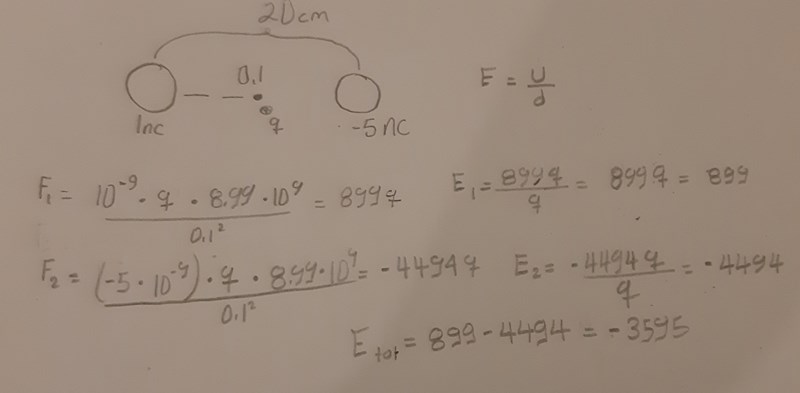 20cm
0.1
1nc
q
-5nc
E = U/d
F₁ = 10⁻⁹ · q · 8.99 · 10⁹ / 0.1² = 899q
E₁ = 899q / q = 899q = 899
F₂ = (-5 · 10⁻⁹) · q · 8.99 · 10⁹ / 0.1² = -4494q
E₂ = -4494q / q = -4494
E tot = 899 - 4494 = -3595